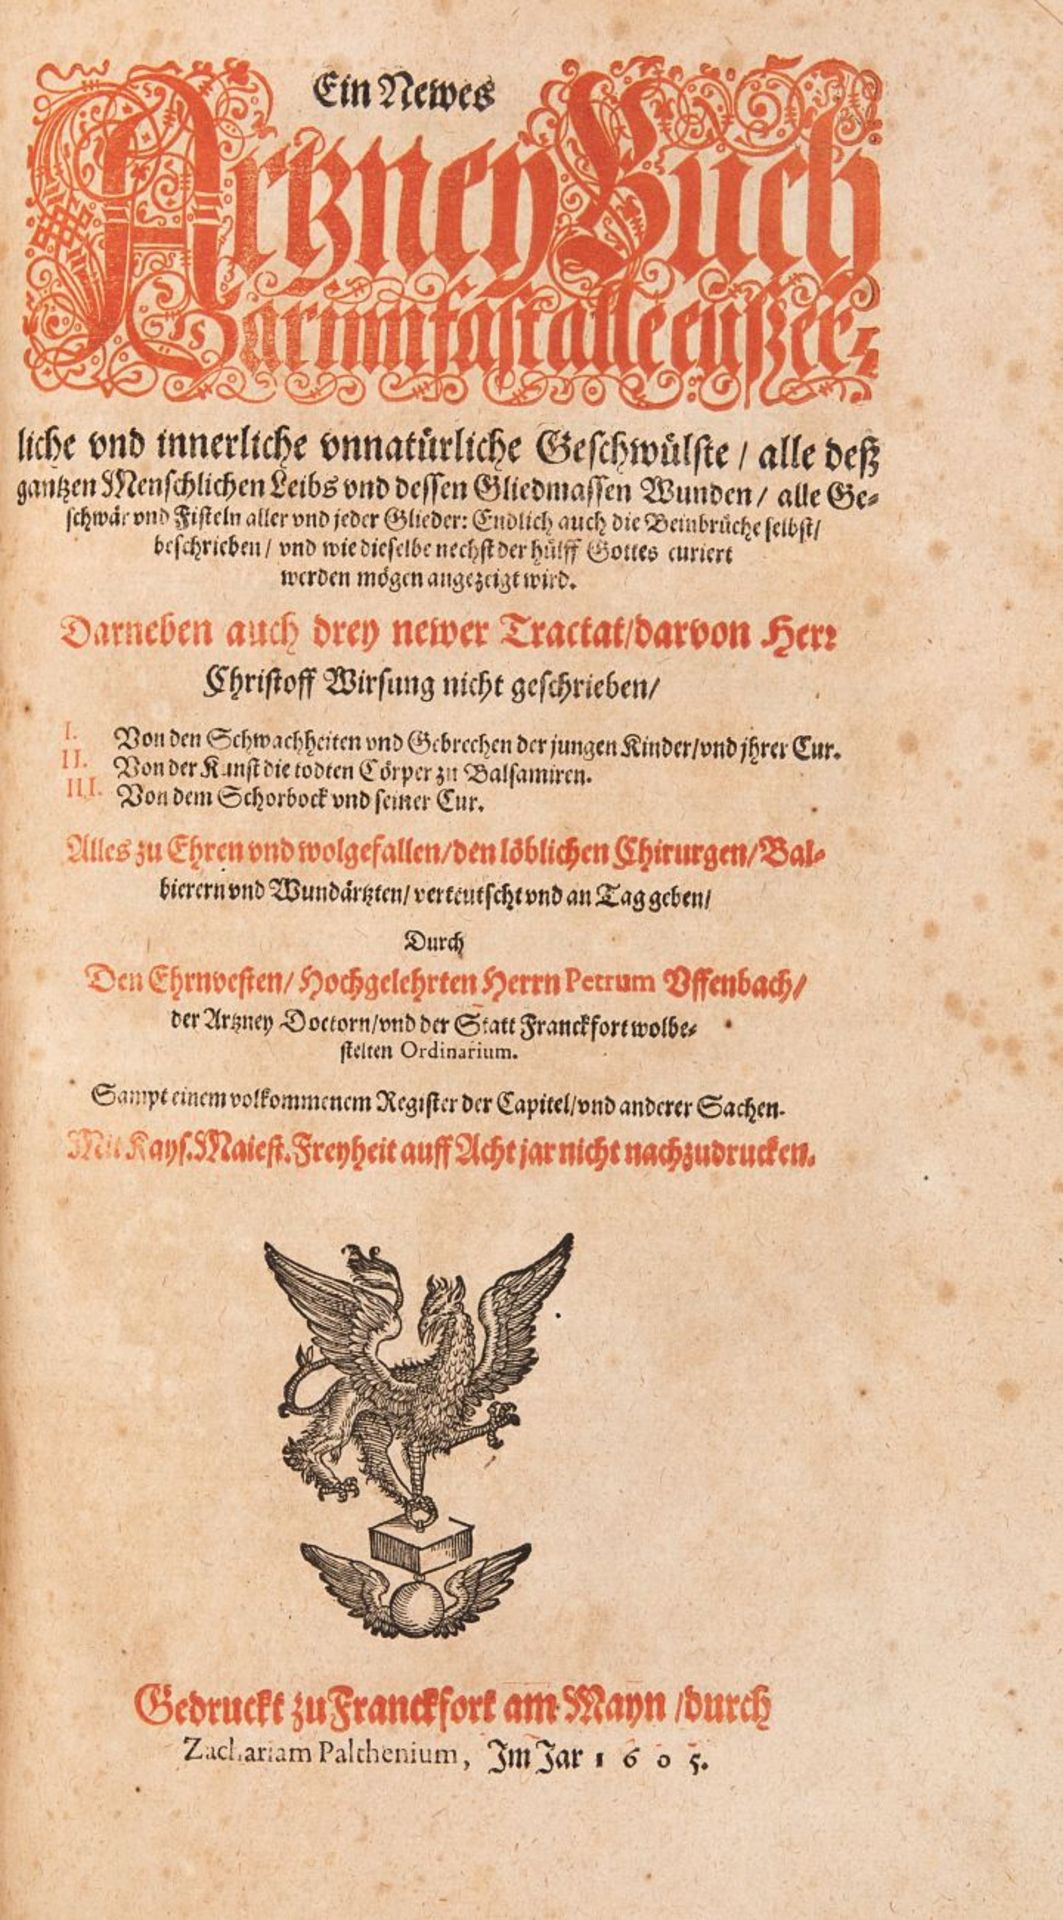 Ein Newes
Artzney Buch
Darinn fast alle eusser-
liche vnd innerliche vnnatürliche Geschwülste / alle deß
gantzen Menschlichen Leibs vnd dessen Gliedmassen Wunden / alle Ge-
schwär vnd Fisteln aller vnd jeder Glieder: Endlich auch die Beinbrüche selbst /
beschrieben / vnd wie dieselbe nechst der hülff Gottes curiert
werden mögen angezeigt wird.
Darneben auch drey newer Tractat / darvon Herr
Christoff Wirsung nicht geschrieben /
I. Von den Schwachheiten vnd Gebrechen der jungen Kinder / vnd jhrer Cur.
II. Von der Kunst die todten Cörper zu Balsamiren.
III. Von dem Schorbock vnd seiner Cur.
Alles zu Ehren vnd wolgefallen / den löblichen Chirurgen / Bal-
bierern vnd Wundärtzten / verteutscht vnd an Tag geben /
Durch
Den Ehrnvesten / Hochgelehrten Herrn Petrum Vffenbach /
der Artzney Doctorn / vnd der Statt Franckfort wolbe-
stelten Ordinarium.
Sampt einem volkommenem Register der Capitel / vnd anderer Sachen.
Mit Kays. Maiest. Freyheit auff Acht jar nicht nachzudrucken.
Gedruckt zu Franckfort am Mayn / durch
Zachariam Palthenium, Im Jar 1605.